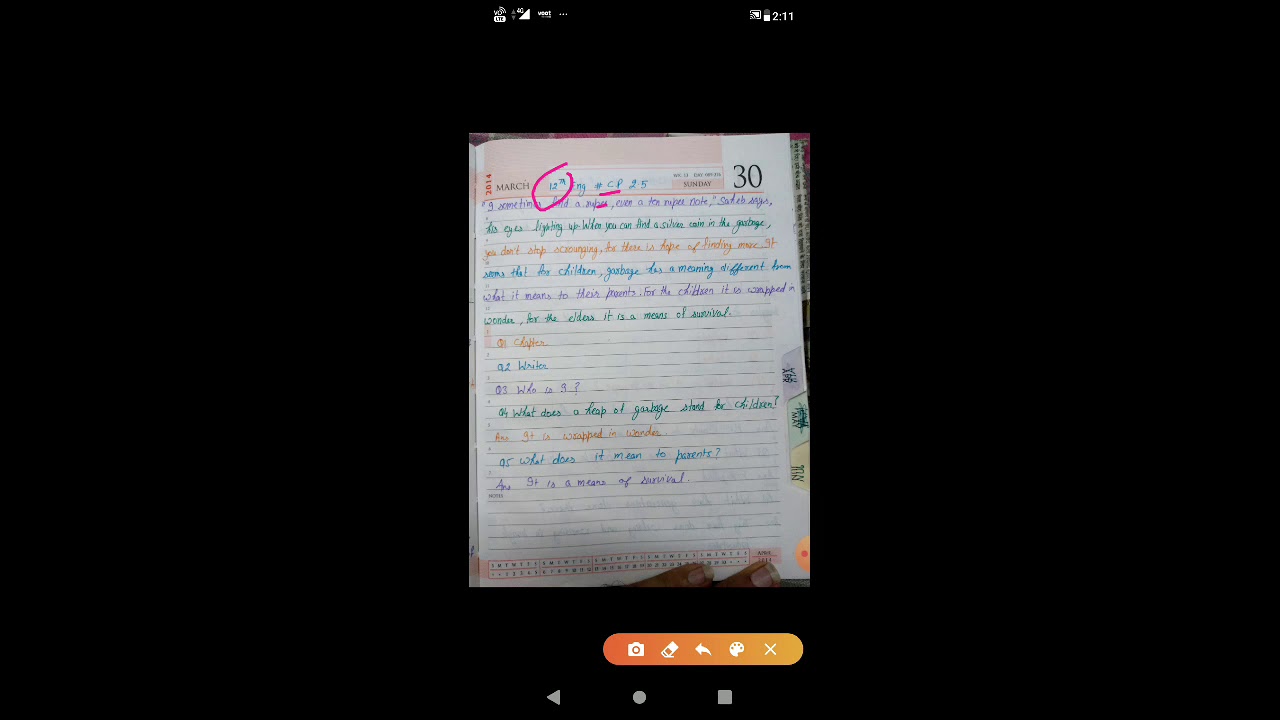 VO LTE 4G voot ... 2:11
2014 MARCH 12th Eng # CP 2.5 WK 13 DAY 089-276 SUNDAY 30
"I sometimes find a rupee, even a ten rupee note," Saheb says,
his eyes lighting up. When you can find a silver coin in the garbage,
you don't stop scrounging, for there is hope of finding more. It
seems that for children, garbage has a meaning different from
what it means to their parents. For the children it is wrapped in
wonder, for the elders it is a means of survival.
Q1 Chapter
Q2 Writer
Q3 Who is I ?
Q4 What does a heap of garbage stand for children?
Ans It is wrapped in wonder.
Q5 What does it mean to parents?
Ans It is a means of survival.
NOTES
S M T W T F S S M T W T F S S M T W T F S S M T W T F S S M T W T F S
APRIL
MAY
JUN